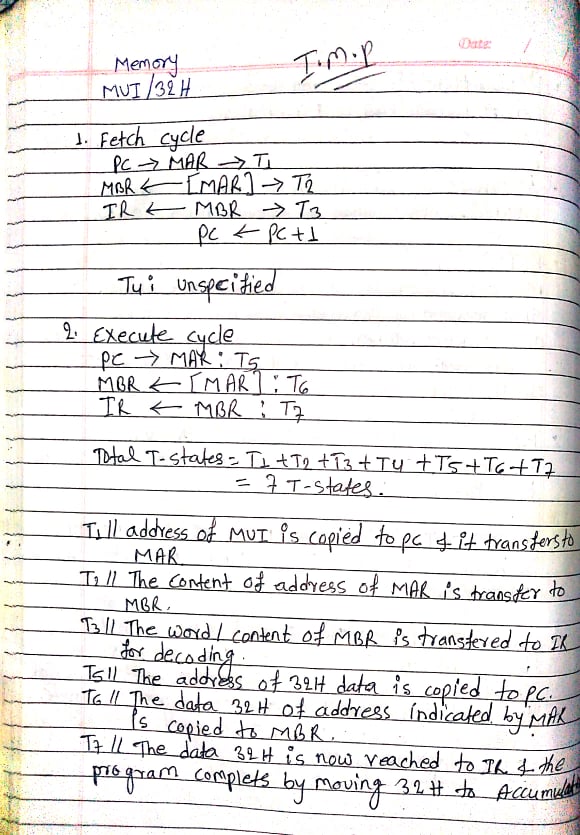 Date / /
I.M.P
Memory
MUI/32H
1. Fetch cycle
PC → MAR → T1
MBR ← [MAR] → T2
IR ← MBR → T3
PC ← PC+1
T4: unspecified
2. Execute cycle
PC → MAR: T5
MBR ← [MAR] : T6
IR ← MBR : T7
Total T-states = T1 + T2 + T3 + T4 + T5 + T6 + T7
= 7 T-states.
T1 // address of MUI is copied to pc & it transfers to
MAR.
T2 // The content of address of MAR is transfer to
MBR.
T3 // The word/content of MBR is transfered to IR
for decoding.
T5 // The address of 32H data is copied to pc.
T6 // The data 32H of address indicated by MAR
is copied to MBR.
T7 // The data 32H is now reached to IR & the
program complets by moving 32H to Accumulat